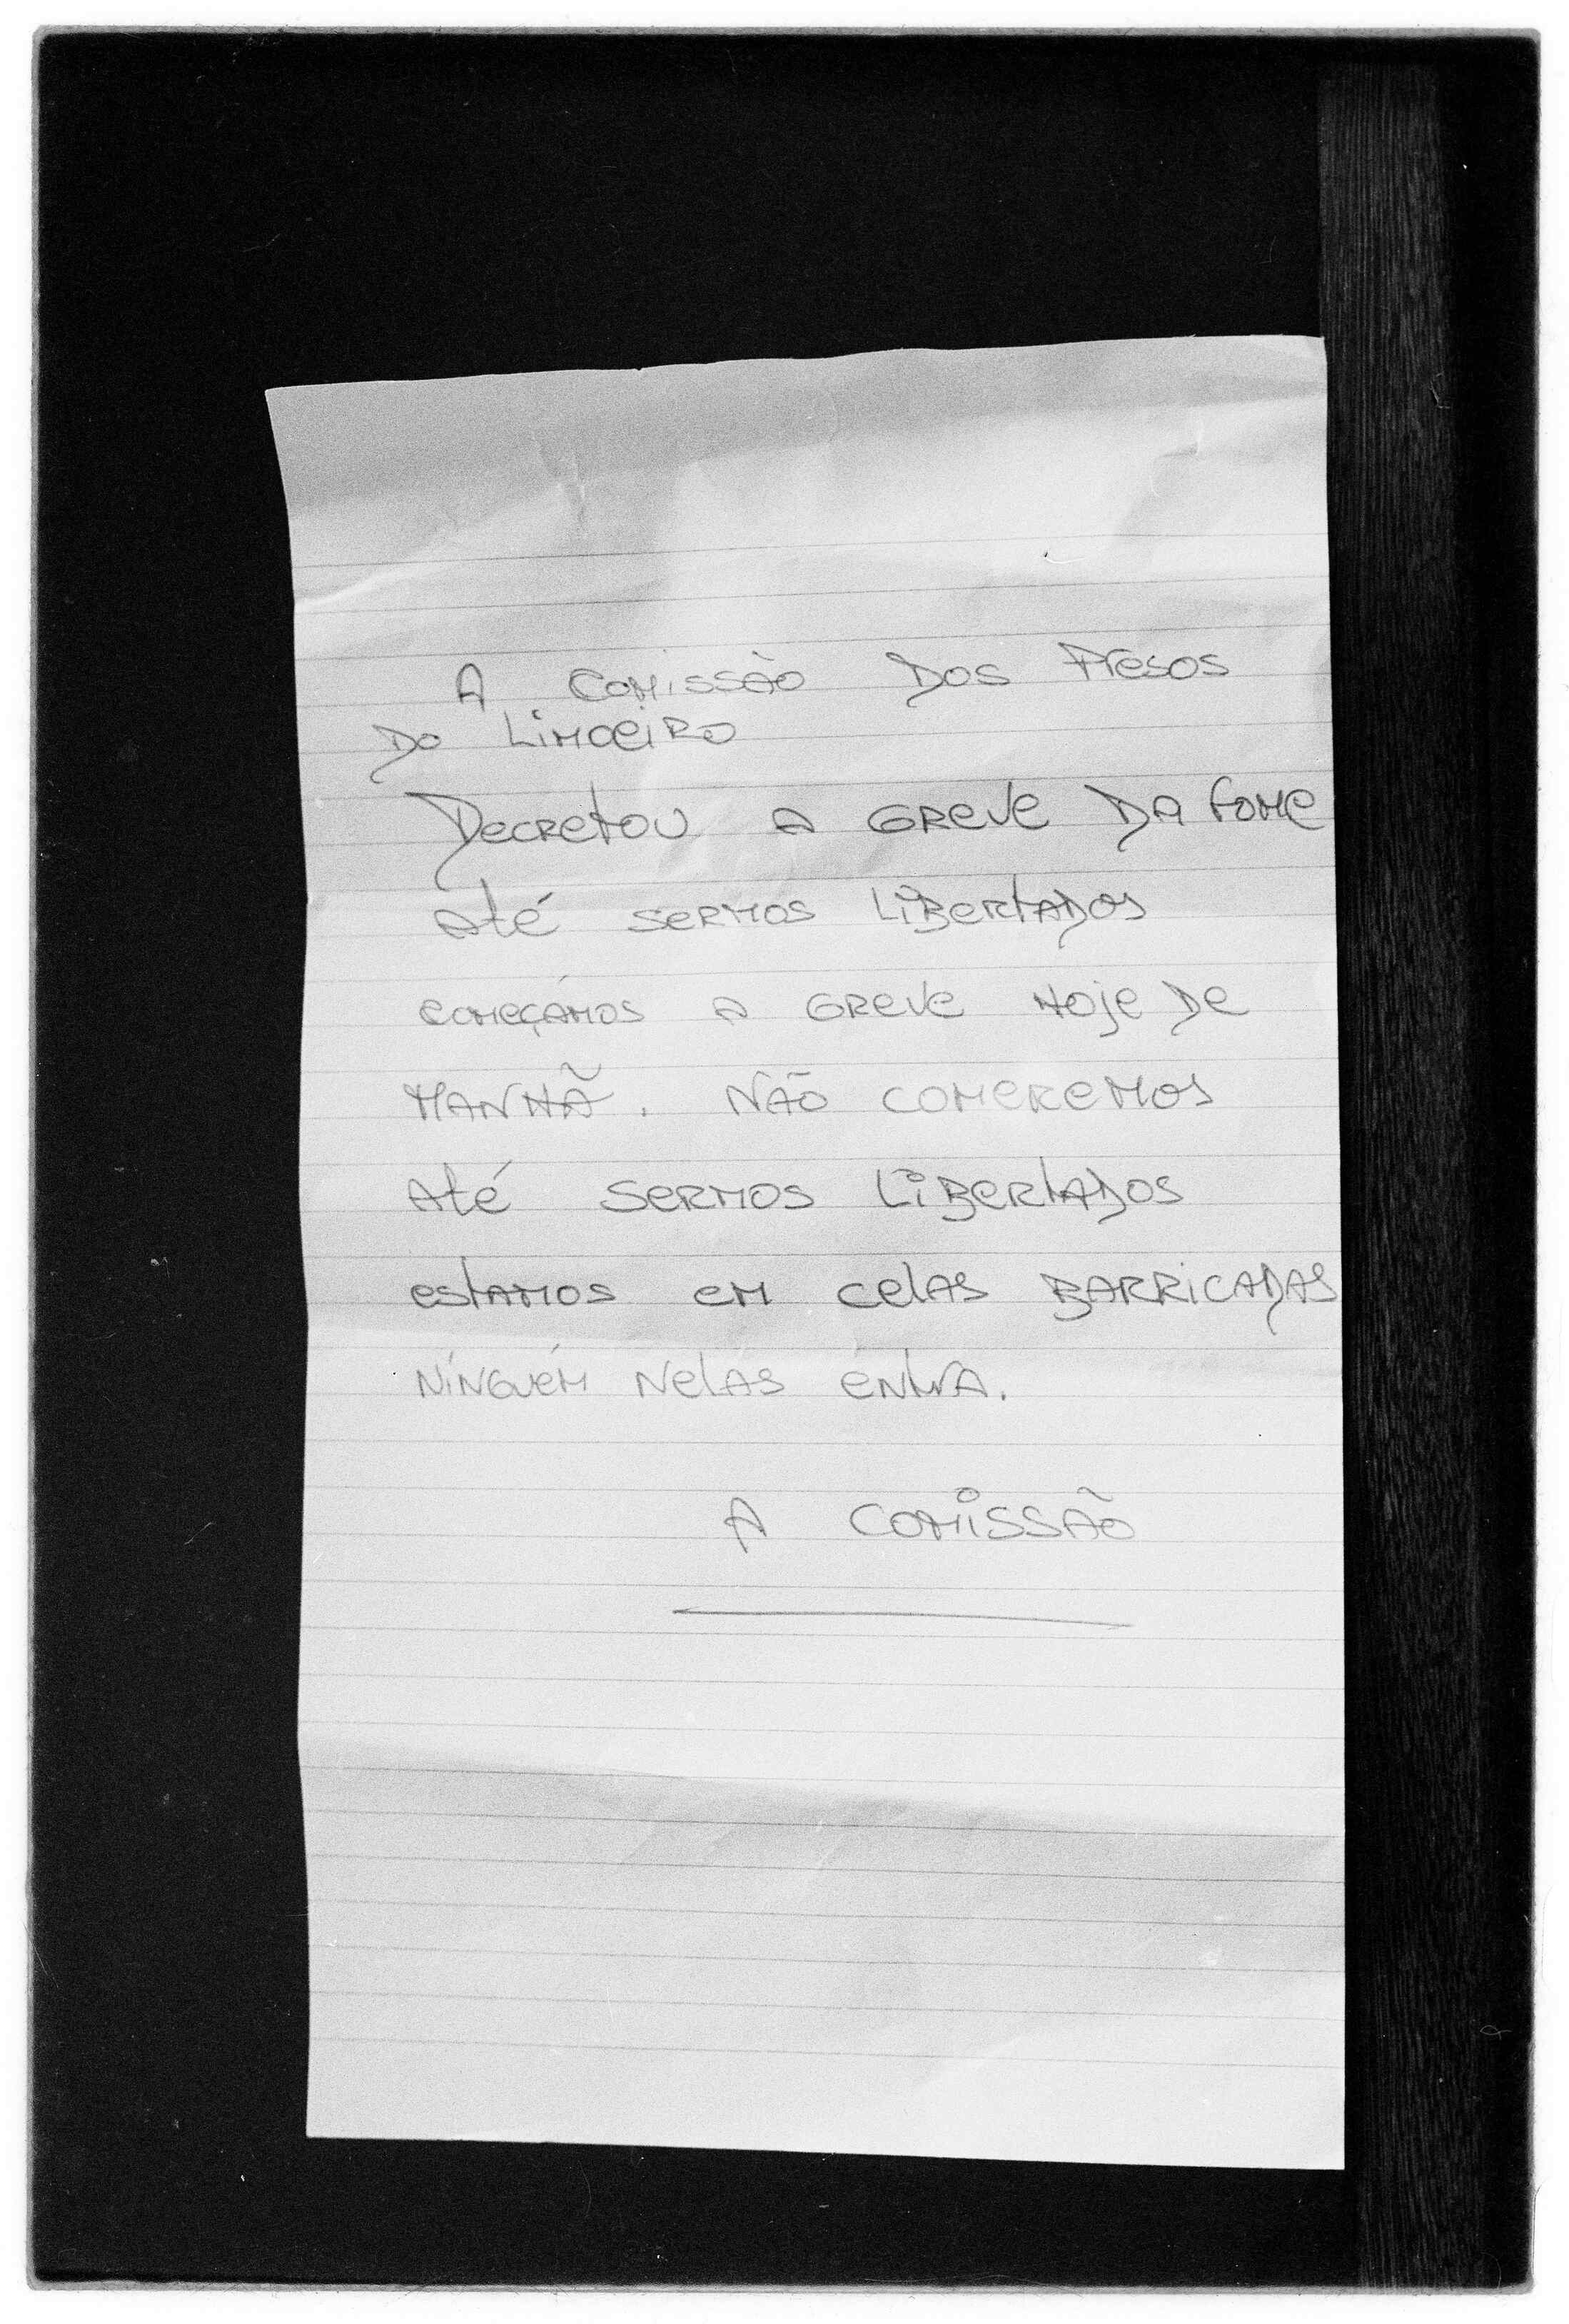 A COMISSÃO DOS PresOS
DO LiMOeiRO
DecRetOU A GReve DA fOMe
Até SeRMOS LiBeRtADOS
COMeçáMOS A GReve HOje De
MANHÃ. NÃO COMeReMOS
Até SeRMOS LiBeRtADOS
estAMOS eM CelAS BARRiCADAS
NíNGuéM NelAS éNtrA.
A COMiSSÃO